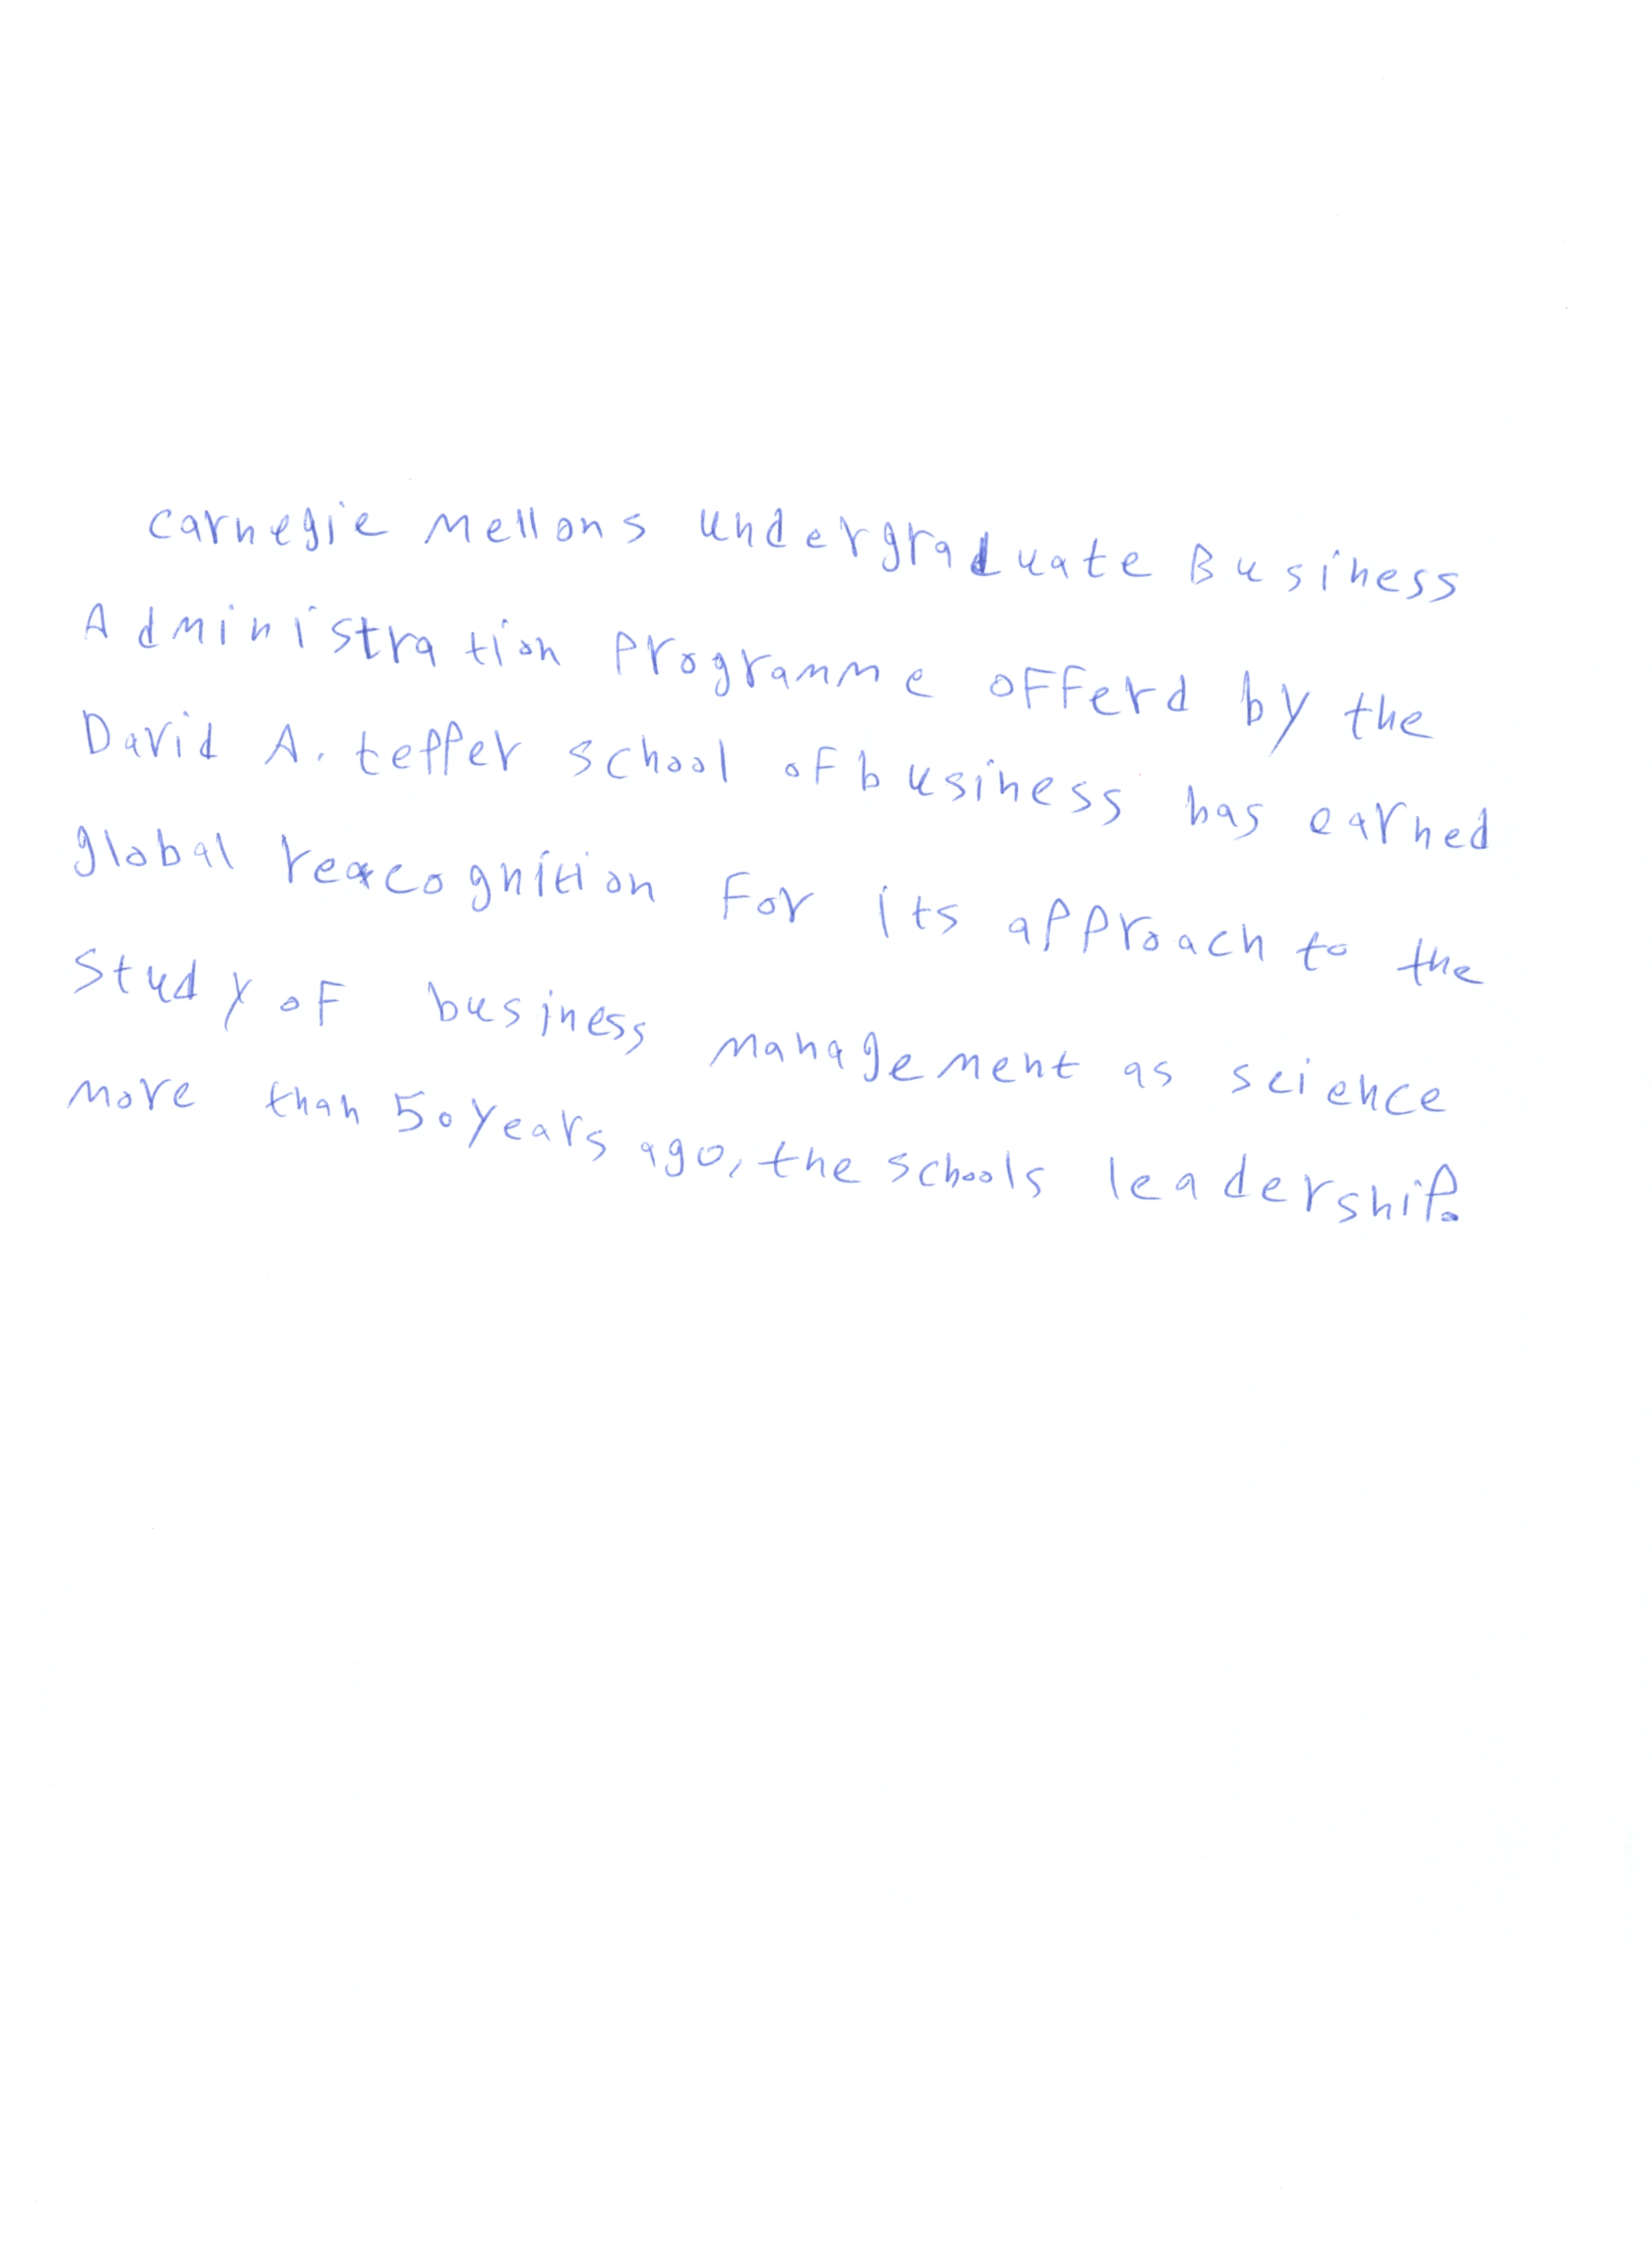 Carnegie Mellons undergraduate Business
Administration Programme offerd by the
David A. tepper school of business has earned
global reacognition For its approach to the
Study of business management as science
More than 50 years ago, the schools leadership.